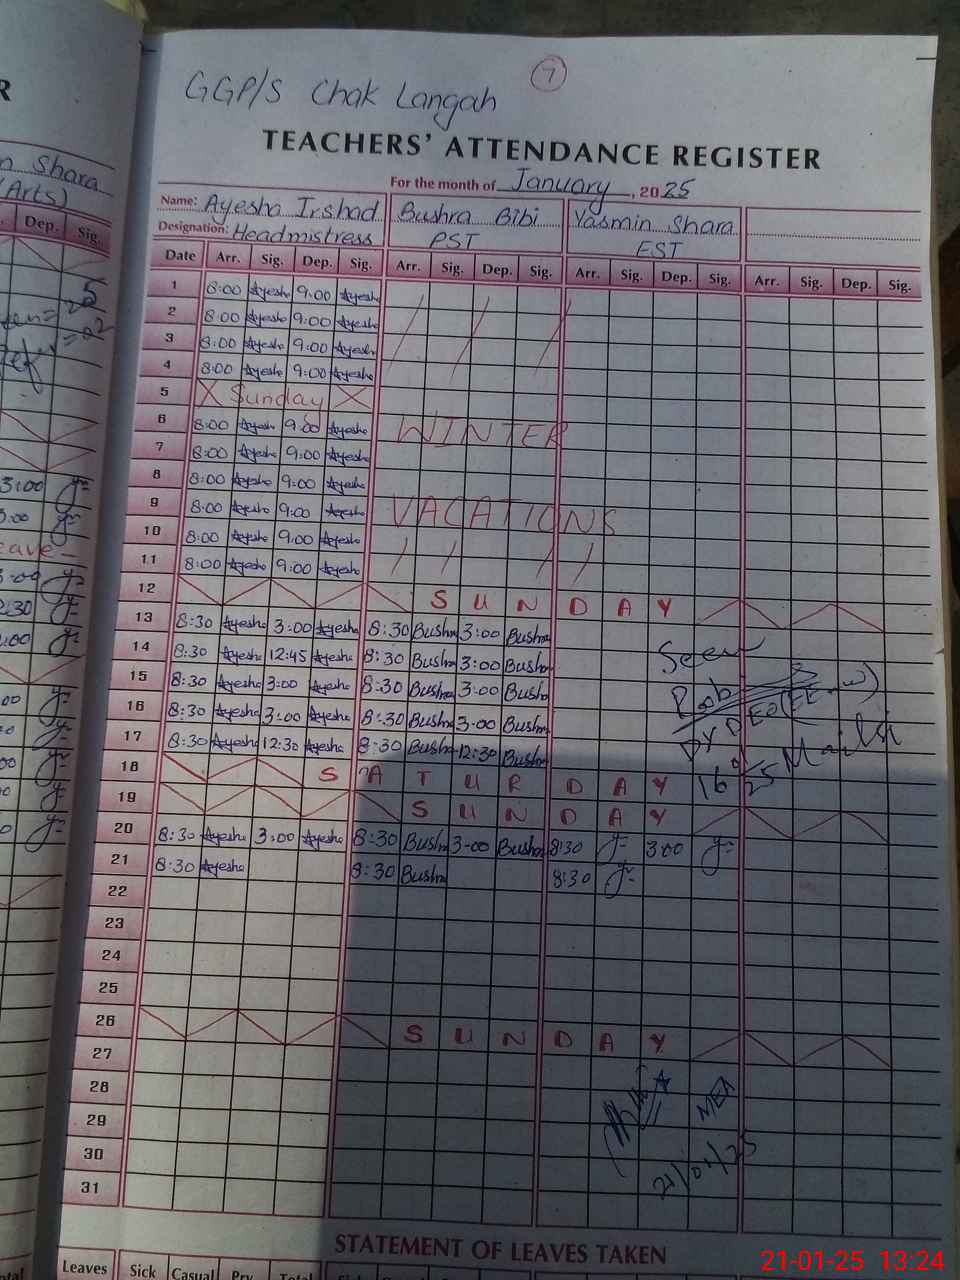 7
GGP/S Chak Langah
TEACHERS' ATTENDANCE REGISTER
For the month of January, 2025
Name: Ayesha Irshad Bushra Bibi Yasmin Shara
Designation: Headmistress PST EST
Date Arr. Sig. Dep. Sig. Arr. Sig. Dep. Sig. Arr. Sig. Dep. Sig. Arr. Sig. Dep. Sig.
1 8:00 Ayesha 9:00 Ayesha
2 8:00 Ayesha 9:00 Ayesha
3 8:00 Ayesha 9:00 Ayesha
4 8:00 Ayesha 9:00 Ayesha
5 Sunday
6 8:00 Ayesha 9:00 Ayesha WINTER
7 8:00 Ayesha 9:00 Ayesha
8 8:00 Ayesha 9:00 Ayesha
9 8:00 Ayesha 9:00 Ayesha VACATIONS
10 8:00 Ayesha 9:00 Ayesha
11 8:00 Ayesha 9:00 Ayesha
12 SUNDAY
13 8:30 Ayesha 3:00 Ayesha 8:30 Bushra 3:00 Bushra
14 8:30 Ayesha 12:45 Ayesha 8:30 Bushra 3:00 Bushra
15 8:30 Ayesha 3:00 Ayesha 8:30 Bushra 3:00 Bushra
16 8:30 Ayesha 3:00 Ayesha 8:30 Bushra 3:00 Bushra
17 8:30 Ayesha 12:30 Ayesha 8:30 Bushra 12:30 Bushra
Seen
Dy DEO (EE-W)
Mailsi
18 SATURDAY
19 SUNDAY
20 8:30 Ayesha 3:00 Ayesha 8:30 Bushra 3:00 Bushra 8:30 3:00
21 8:30 Ayesha 8:30 Bushra 8:30
22
23
24
25
26 SUNDAY
27
28
29
30
31
MEA
21/01/25
STATEMENT OF LEAVES TAKEN
Leaves Sick Casual Prv. Total
21-01-25 13:24